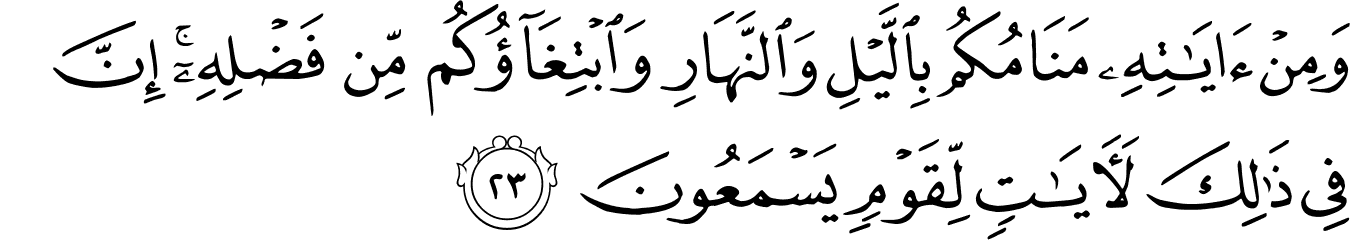 وَمِنْ ءَايَـٰتِهِۦ مَنَامُكُم بِٱلَّيْلِ وَٱلنَّهَارِ وَٱبْتِغَآؤُكُم مِّن فَضْلِهِۦٓ ۚ إِنَّ
فِى ذَٰلِكَ لَـَٔايَـٰتٍ لِّقَوْمٍ يَسْمَعُونَ ٢٣